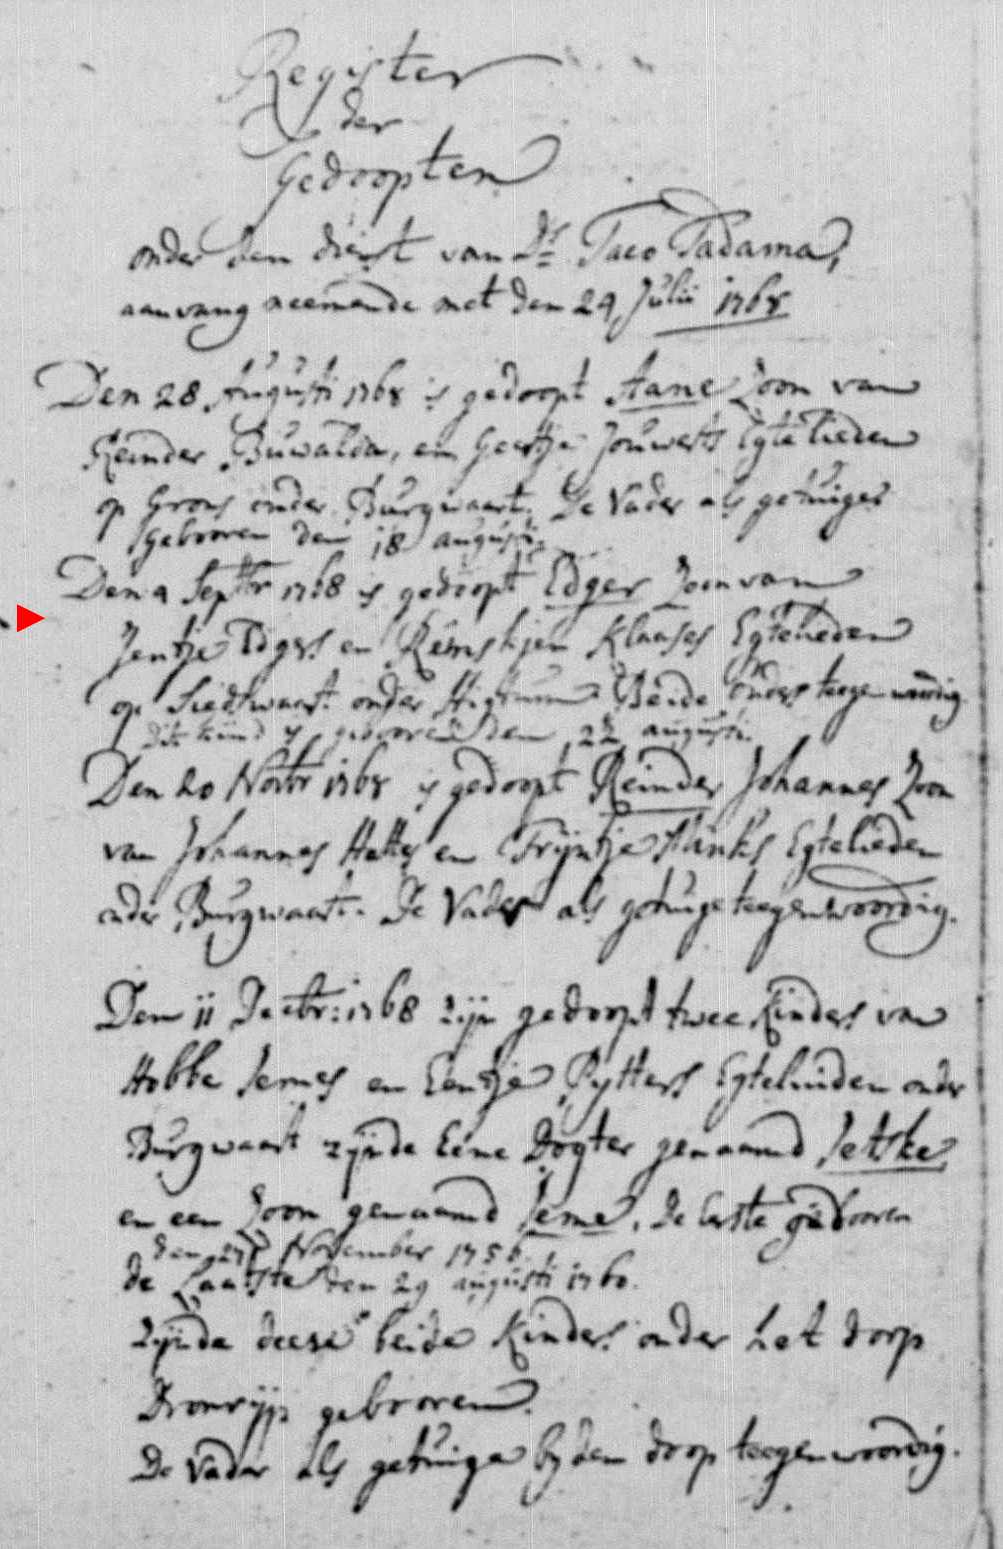 Register
der
Gedoopten
onder den dienst van Ds Taco Tadama,
aanvang neemende met den 24 Julii 1768
Den 28 Augusti 1768 is gedoopt Aane Zoon van
Reinder Buwalda, en Geertje Jouwerts Egtelieden
op Grons onder Burgwaart. De Vader als getuige
Gebooren den 18 augusti.
Den 4 Septbr 1768 is gedoopt Edger Zoon van
Jentje Edgers en Remskjen Klaases Egtelieden
op onder Hichtum Beide Ouders teegenwoordig
dit kind is gebooren den 22 augusti.
Den 20 Novbr 1768 is gedoopt Reinder Johannes Zoon
van Johannes Hettes en Trijntje Egtelieden
onder Burgwaart. De Vader als getuige teegenwoordig.
Den 11 Decbr: 1768 zijn gedoopt twee Kinders van
Hobbe Jemes en Eentje Pytters Egteluiden onder
Burgwaart zijnde Eene Dogter genaamd Jetske
en een Zoon genaamd Jeme, de Eerste gebooren
den 27 November 1756.
de Laatste den 29 augusti 1760.
zijnde deese beide Kinders onder het dorp
Dronrijp gebooren.
De Vader als getuige by den doop teegenwoordig.